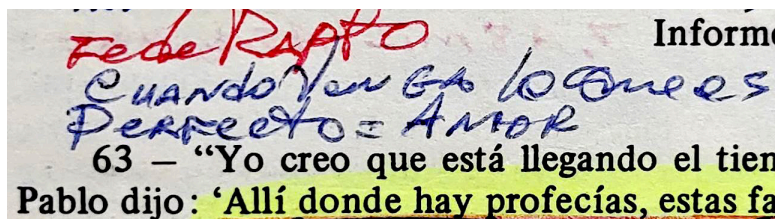 Fede RAPTO
Informe
CUANDO VenGA lo que es
Perfecto = AMOR
63 – “Yo creo que está llegando el tien
Pablo dijo: ‘Allí donde hay profecías, estas fa